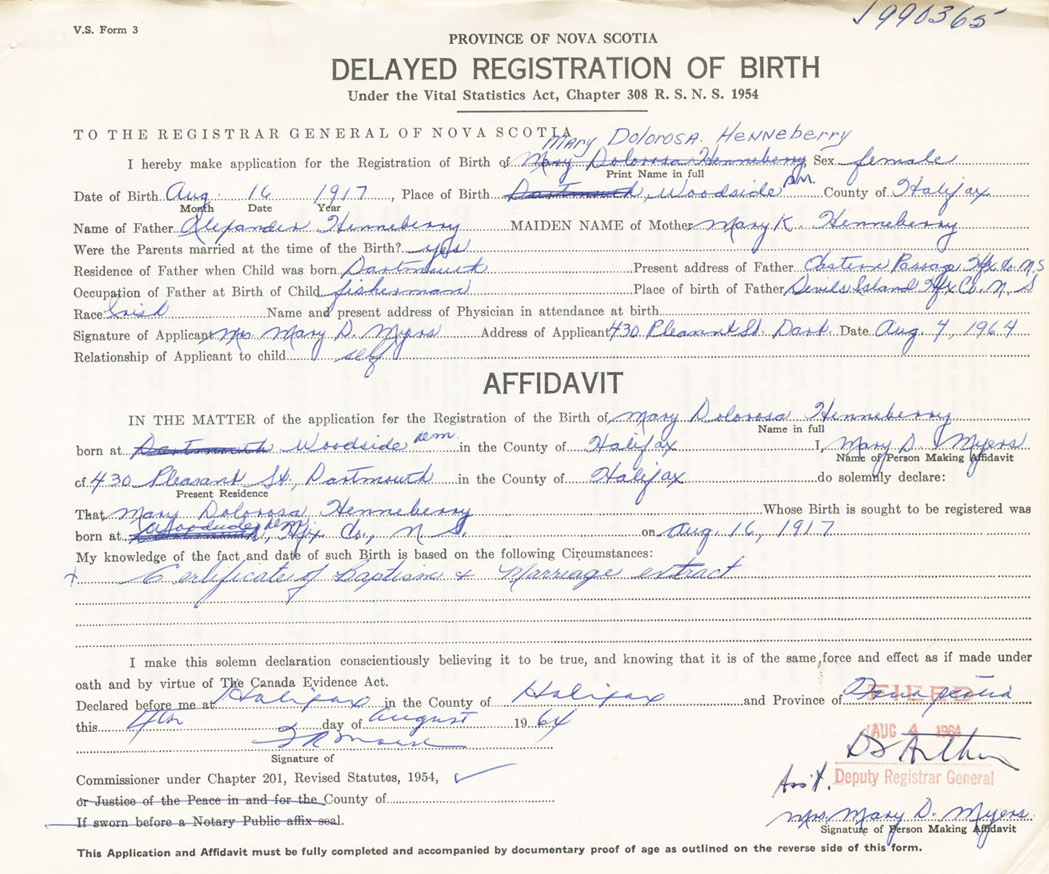 V.S. Form 3
1990365
PROVINCE OF NOVA SCOTIA
DELAYED REGISTRATION OF BIRTH
Under the Vital Statistics Act, Chapter 308 R. S. N. S. 1954
TO THE REGISTRAR GENERAL OF NOVA SCOTIA
Mary Dolorosa Henneberry
I hereby make application for the Registration of Birth of Mary Dolorosa Henneberry Sex female
Print Name in full
Date of Birth Aug. 16 1917, Place of Birth Dartmouth, Woodside County of Halifax
Month Date Year
Name of Father Alexander Henneberry MAIDEN NAME of Mother Mary K. Henneberry
Were the Parents married at the time of the Birth? yes
Residence of Father when Child was born Dartmouth Present address of Father Passage Hfx Co. N.S
Occupation of Father at Birth of Child fisherman Place of birth of Father Devils Island Hfx Co. N. S
Race Irish Name and present address of Physician in attendance at birth
Signature of Applicant Mrs Mary D. Myers Address of Applicant 430 Pleasant St. Dart. Date Aug. 4, 1964
Relationship of Applicant to child self
AFFIDAVIT
IN THE MATTER of the application for the Registration of the Birth of Mary Dolorosa Henneberry
Name in full
born at Dartmouth Woodside in the County of Halifax I, Mary D. Myers
Name of Person Making Affidavit
of 430 Pleasant St., Dartmouth in the County of Halifax do solemnly declare:
Present Residence
That Mary Dolorosa Henneberry Whose Birth is sought to be registered was
Woodside
born at Dartmouth, Hfx Co., N. S. on Aug. 16, 1917
My knowledge of the fact and date of such Birth is based on the following Circumstances:
Certificate of Baptism & Marriage extract
I make this solemn declaration conscientiously believing it to be true, and knowing that it is of the same force and effect as if made under
oath and by virtue of The Canada Evidence Act.
Declared before me at Halifax in the County of Halifax and Province of Nova Scotia
FILED
this 4th day of August 1964
AUG 4 1964
Signature of
Commissioner under Chapter 201, Revised Statutes, 1954,
Ass't. Deputy Registrar General
or Justice of the Peace in and for the County of
Mrs. Mary D. Myers
If sworn before a Notary Public affix seal.
Signature of Person Making Affidavit
This Application and Affidavit must be fully completed and accompanied by documentary proof of age as outlined on the reverse side of this form.